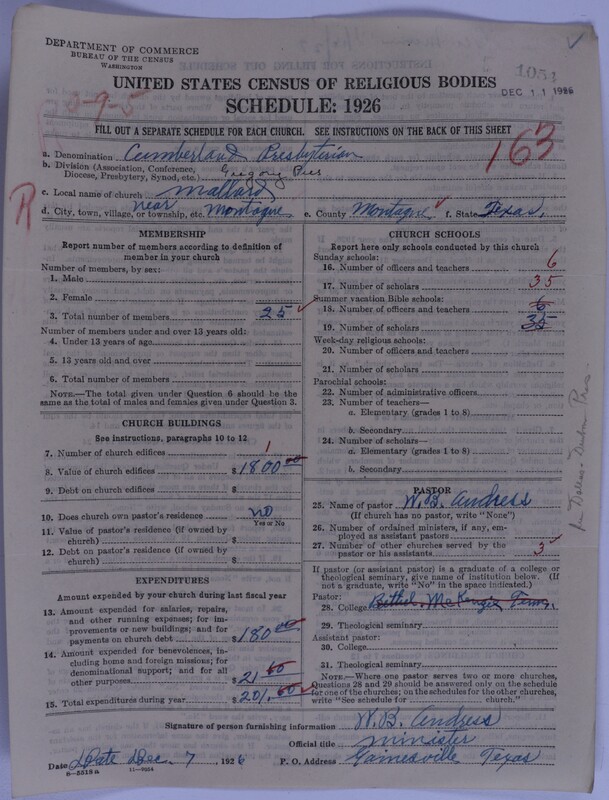 DEPARTMENT OF COMMERCE
BUREAU OF THE CENSUS
WASHINGTON
1051
DEC 11 1926
UNITED STATES CENSUS OF RELIGIOUS BODIES
SCHEDULE: 1926
0-9-5
163
FILL OUT A SEPARATE SCHEDULE FOR EACH CHURCH. SEE INSTRUCTIONS ON THE BACK OF THIS SHEET
a. Denomination Cumberland Presbyterian
b. Division (Association, Conference, Diocese, Presbytery, Synod, etc.) Gregory Pres
c. Local name of church Mallard
R
d. City, town, village, or township, etc. near Montague e. County Montague f. State Texas.
MEMBERSHIP
Report number of members according to definition of
member in your church
Number of members, by sex:
1. Male
2. Female
3. Total number of members 25
Number of members under and over 13 years old:
4. Under 13 years of age
5. 13 years old and over
6. Total number of members
NOTE.—The total given under Question 6 should be the
same as the total of males and females given under Question 3.
CHURCH BUILDINGS
See instructions, paragraphs 10 to 12
7. Number of church edifices 1
8. Value of church edifices $1800.00
9. Debt on church edifices $
10. Does church own pastor's residence? no
Yes or No
11. Value of pastor's residence (if owned by
church) $
12. Debt on pastor's residence (if owned by
church) $
EXPENDITURES
Amount expended by your church during last fiscal year
13. Amount expended for salaries, repairs,
and other running expenses; for im-
provements or new buildings; and for
payments on church debt $180.00
14. Amount expended for benevolences, in-
cluding home and foreign missions; for
denominational support; and for all
other purposes $21.60
15. Total expenditures during year $201.60
CHURCH SCHOOLS
Report here only schools conducted by this church
Sunday schools:
16. Number of officers and teachers 6
17. Number of scholars 35
Summer vacation Bible schools:
18. Number of officers and teachers 6
19. Number of scholars 35
Week-day religious schools:
20. Number of officers and teachers
21. Number of scholars
Parochial schools:
22. Number of administrative officers
23. Number of teachers—
a. Elementary (grades 1 to 8)
b. Secondary
24. Number of scholars—
a. Elementary (grades 1 to 8)
b. Secondary
PASTOR
25. Name of pastor W. B. Andress
(If church has no pastor, write "None")
26. Number of ordained ministers, if any, em-
ployed as assistant pastors
27. Number of other churches served by the
pastor or his assistants 3
If pastor (or assistant pastor) is a graduate of a college or
theological seminary, give name of institution below. (If
not a graduate, write "No" in the space indicated.)
Pastor:
28. College Bethel, McKenzie Tenn.
29. Theological seminary
Assistant pastor:
30. College
31. Theological seminary
NOTE.—Where one pastor serves two or more churches,
Questions 28 and 29 should be answered only on the schedule
for one of the churches; on the schedules for the other churches,
write "See schedule for church."
Signature of person furnishing information W. B. Andress
Official title minister
Date Date Dec. 7, 1926 P. O. Address Gainesville Texas
8-5518a 11-9264